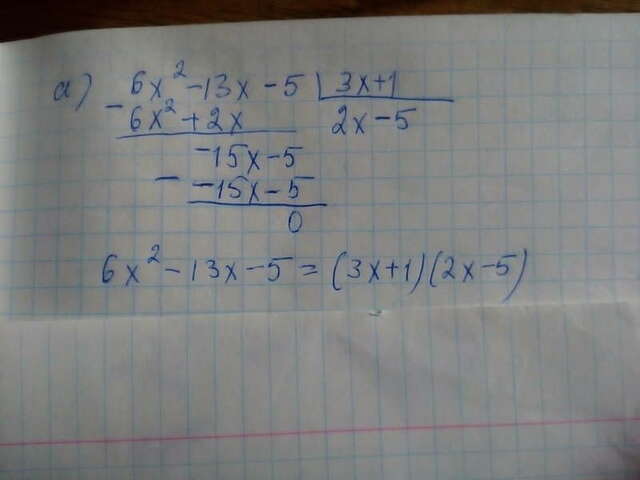 a) 6x² - 13x - 5 | 3x+1
- 6x² + 2x 2x - 5
-15x - 5
- -15x - 5
0
6x² - 13x - 5 = (3x+1)(2x-5)